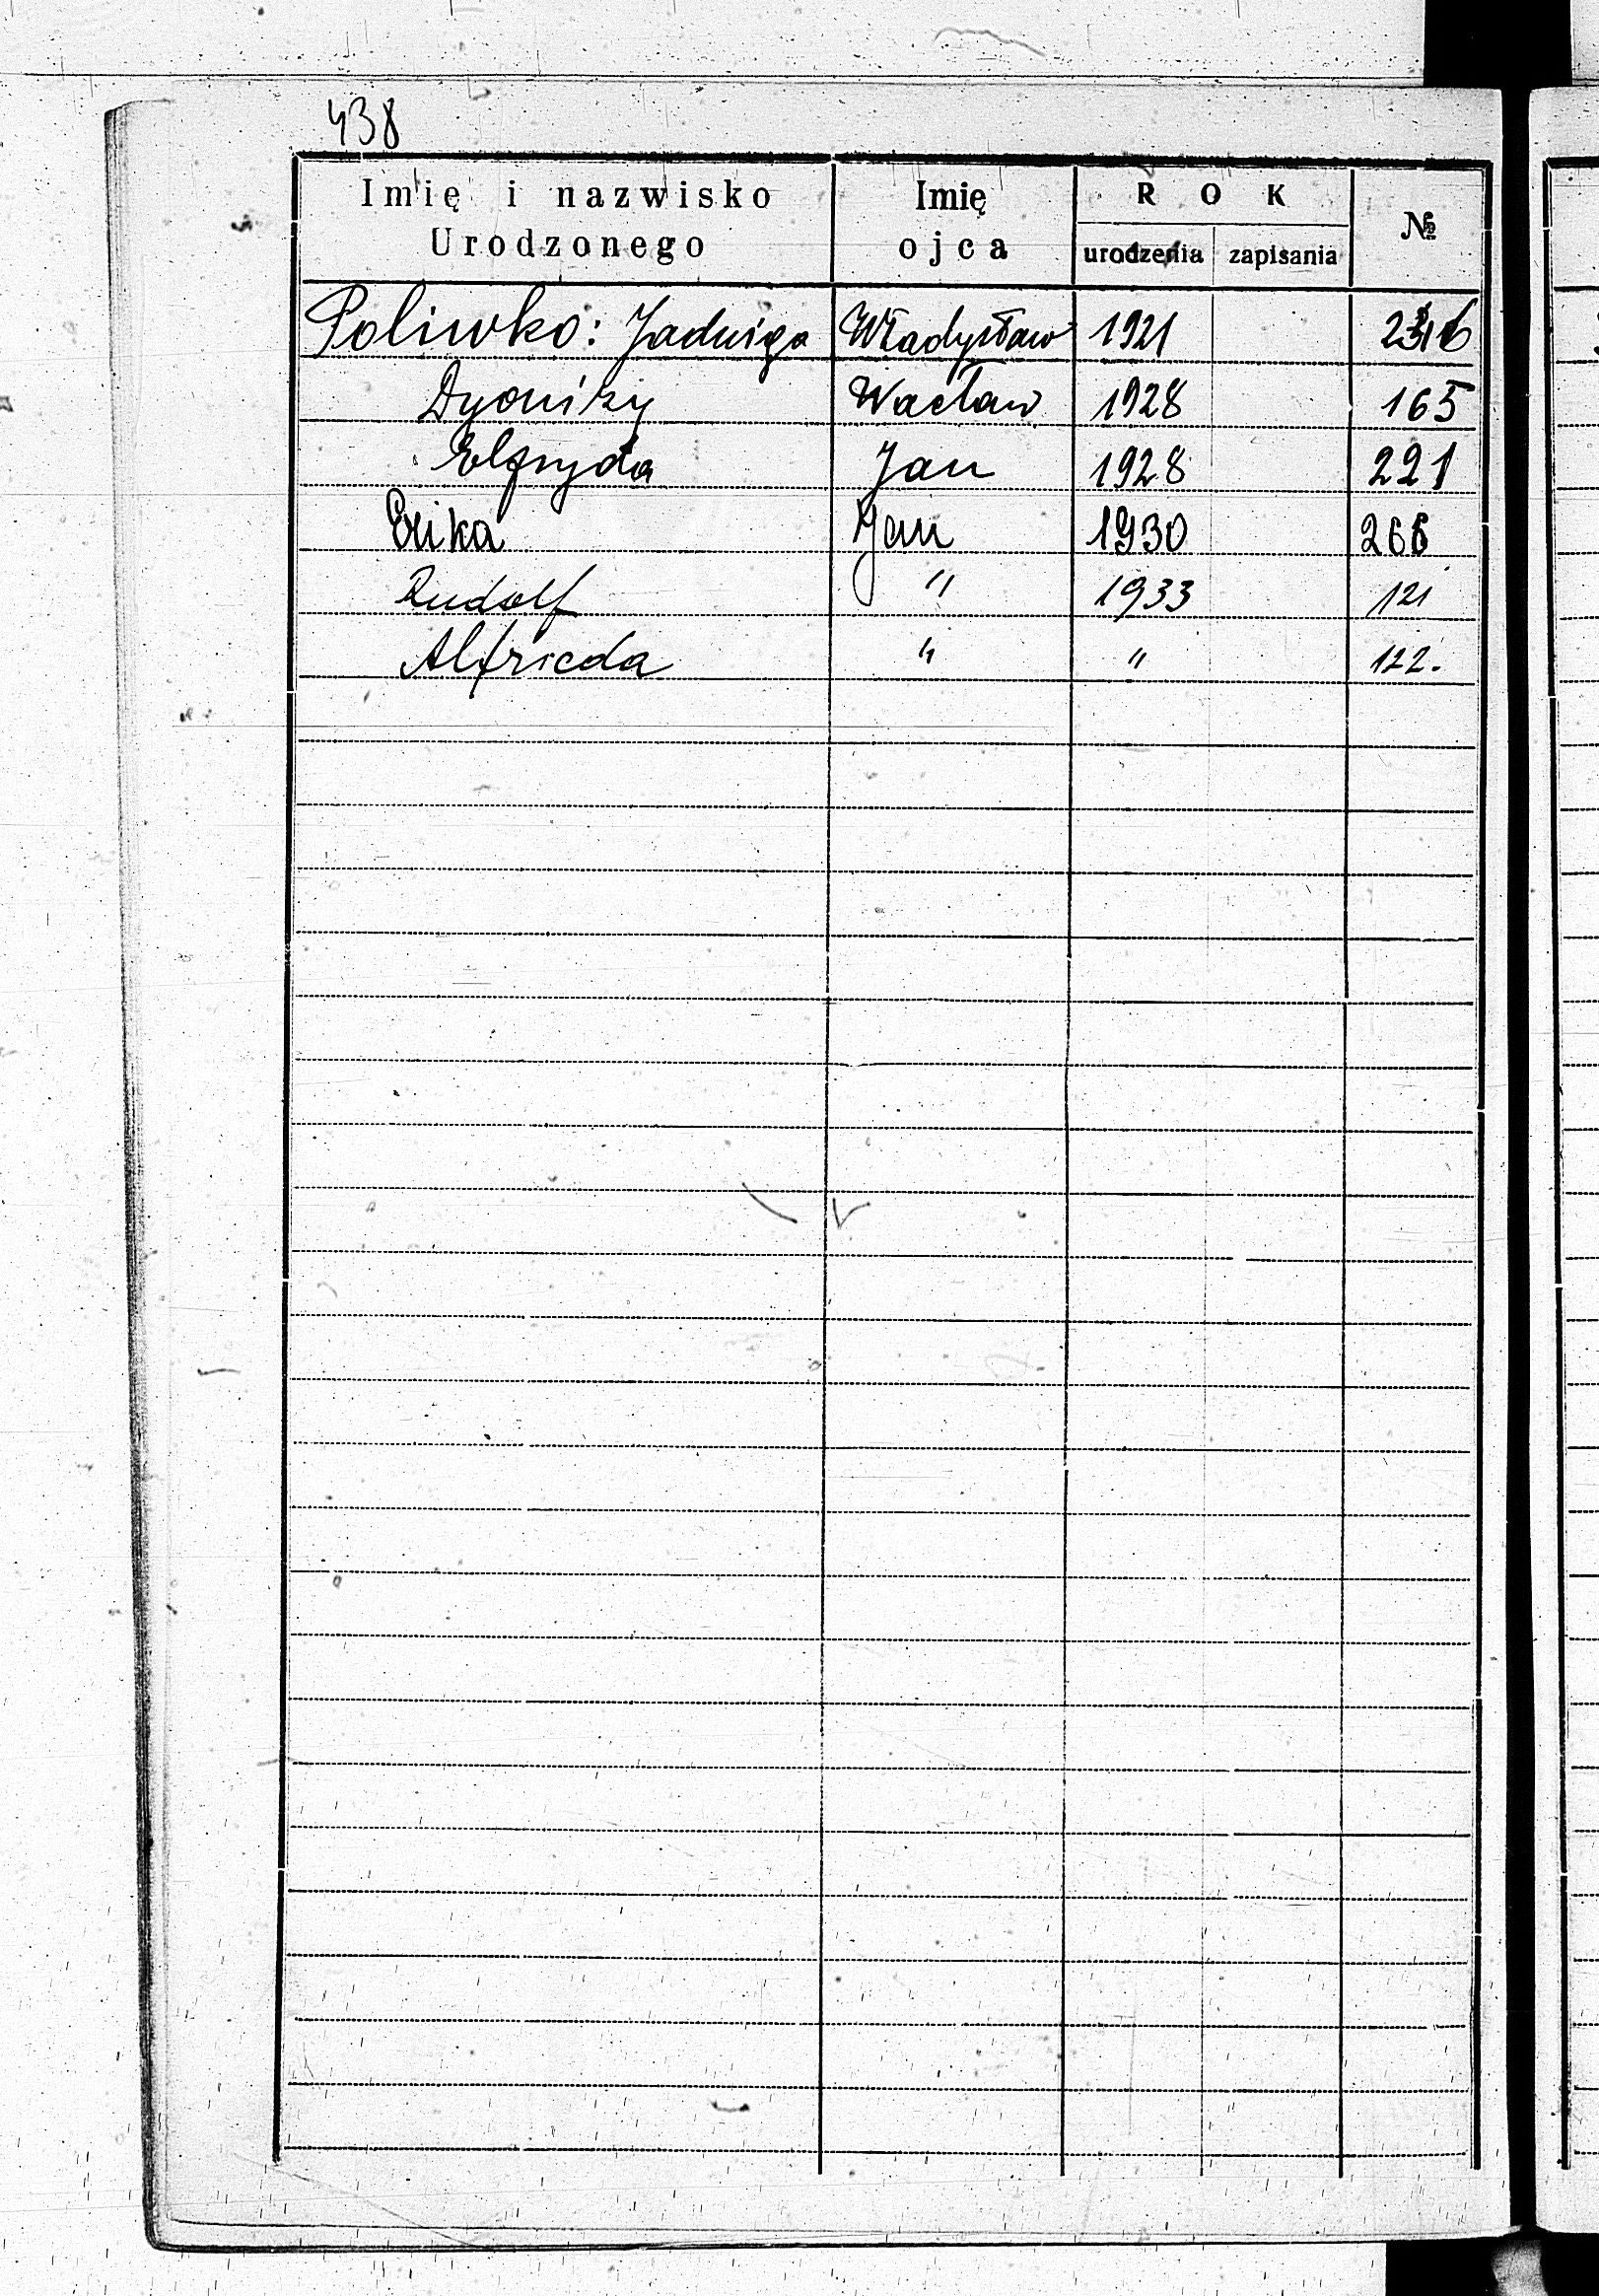 438
Imię i nazwisko Urodzonego Imię ojca ROK №
urodzenia zapisania
Poliwko: Jadwiga Władysław 1921
Dyonizy Wacław 1928 165
Elfryda Jan 1928 221
Erika Jan 1930 266
Rudolf " 1933 121
Alfrieda " " 122.